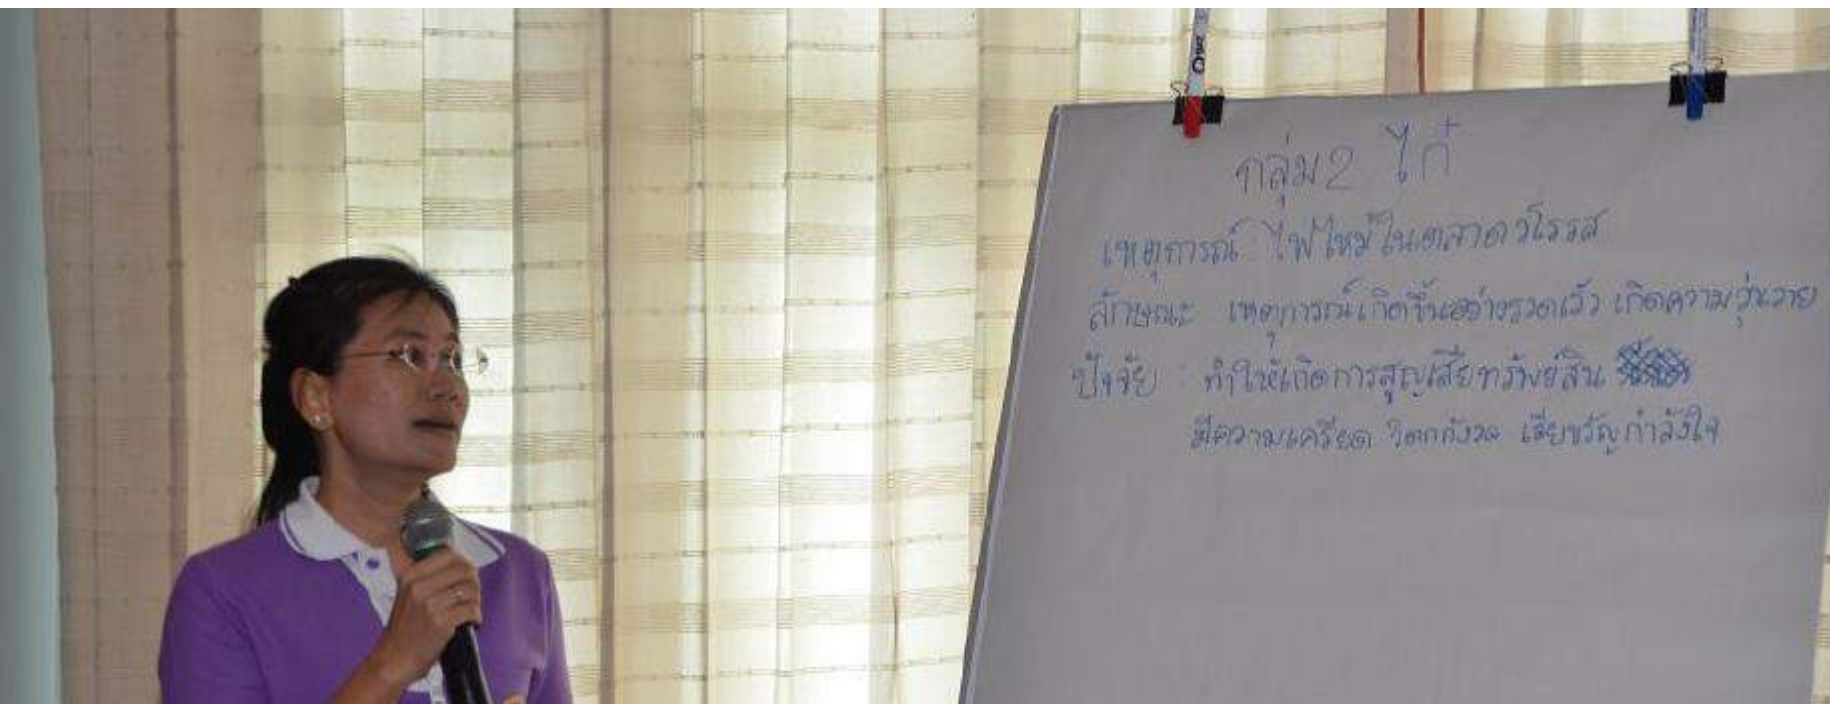 กลุ่ม2 ไก๋
เหตุการณ์ ไฟไหม้ในตลาดวโรรส
ลักษณะ เหตุการณ์เกิดขึ้นอย่างรวดเร็ว เกิดความวุ่นวาย
ปัจจัย ทำให้เกิดการสูญเสียทรัพย์สิน
มีความเครียด วิตกกังวล เสียขวัญกำลังใจ